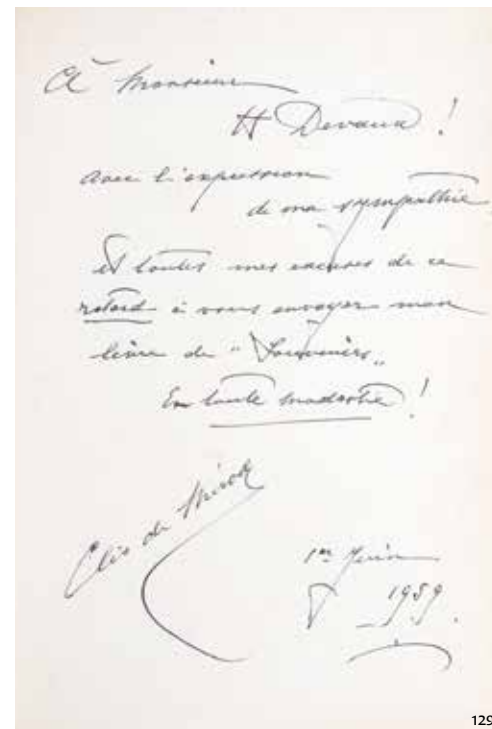 À Monsieur
H Devaux !
avec l'expression
de ma sympathie
et toutes mes excuses de ce
retard à vous envoyer mon
livre de "Souvenirs"
En toute modestie !
Cléo de Mérode
1er Juin
1959.
129